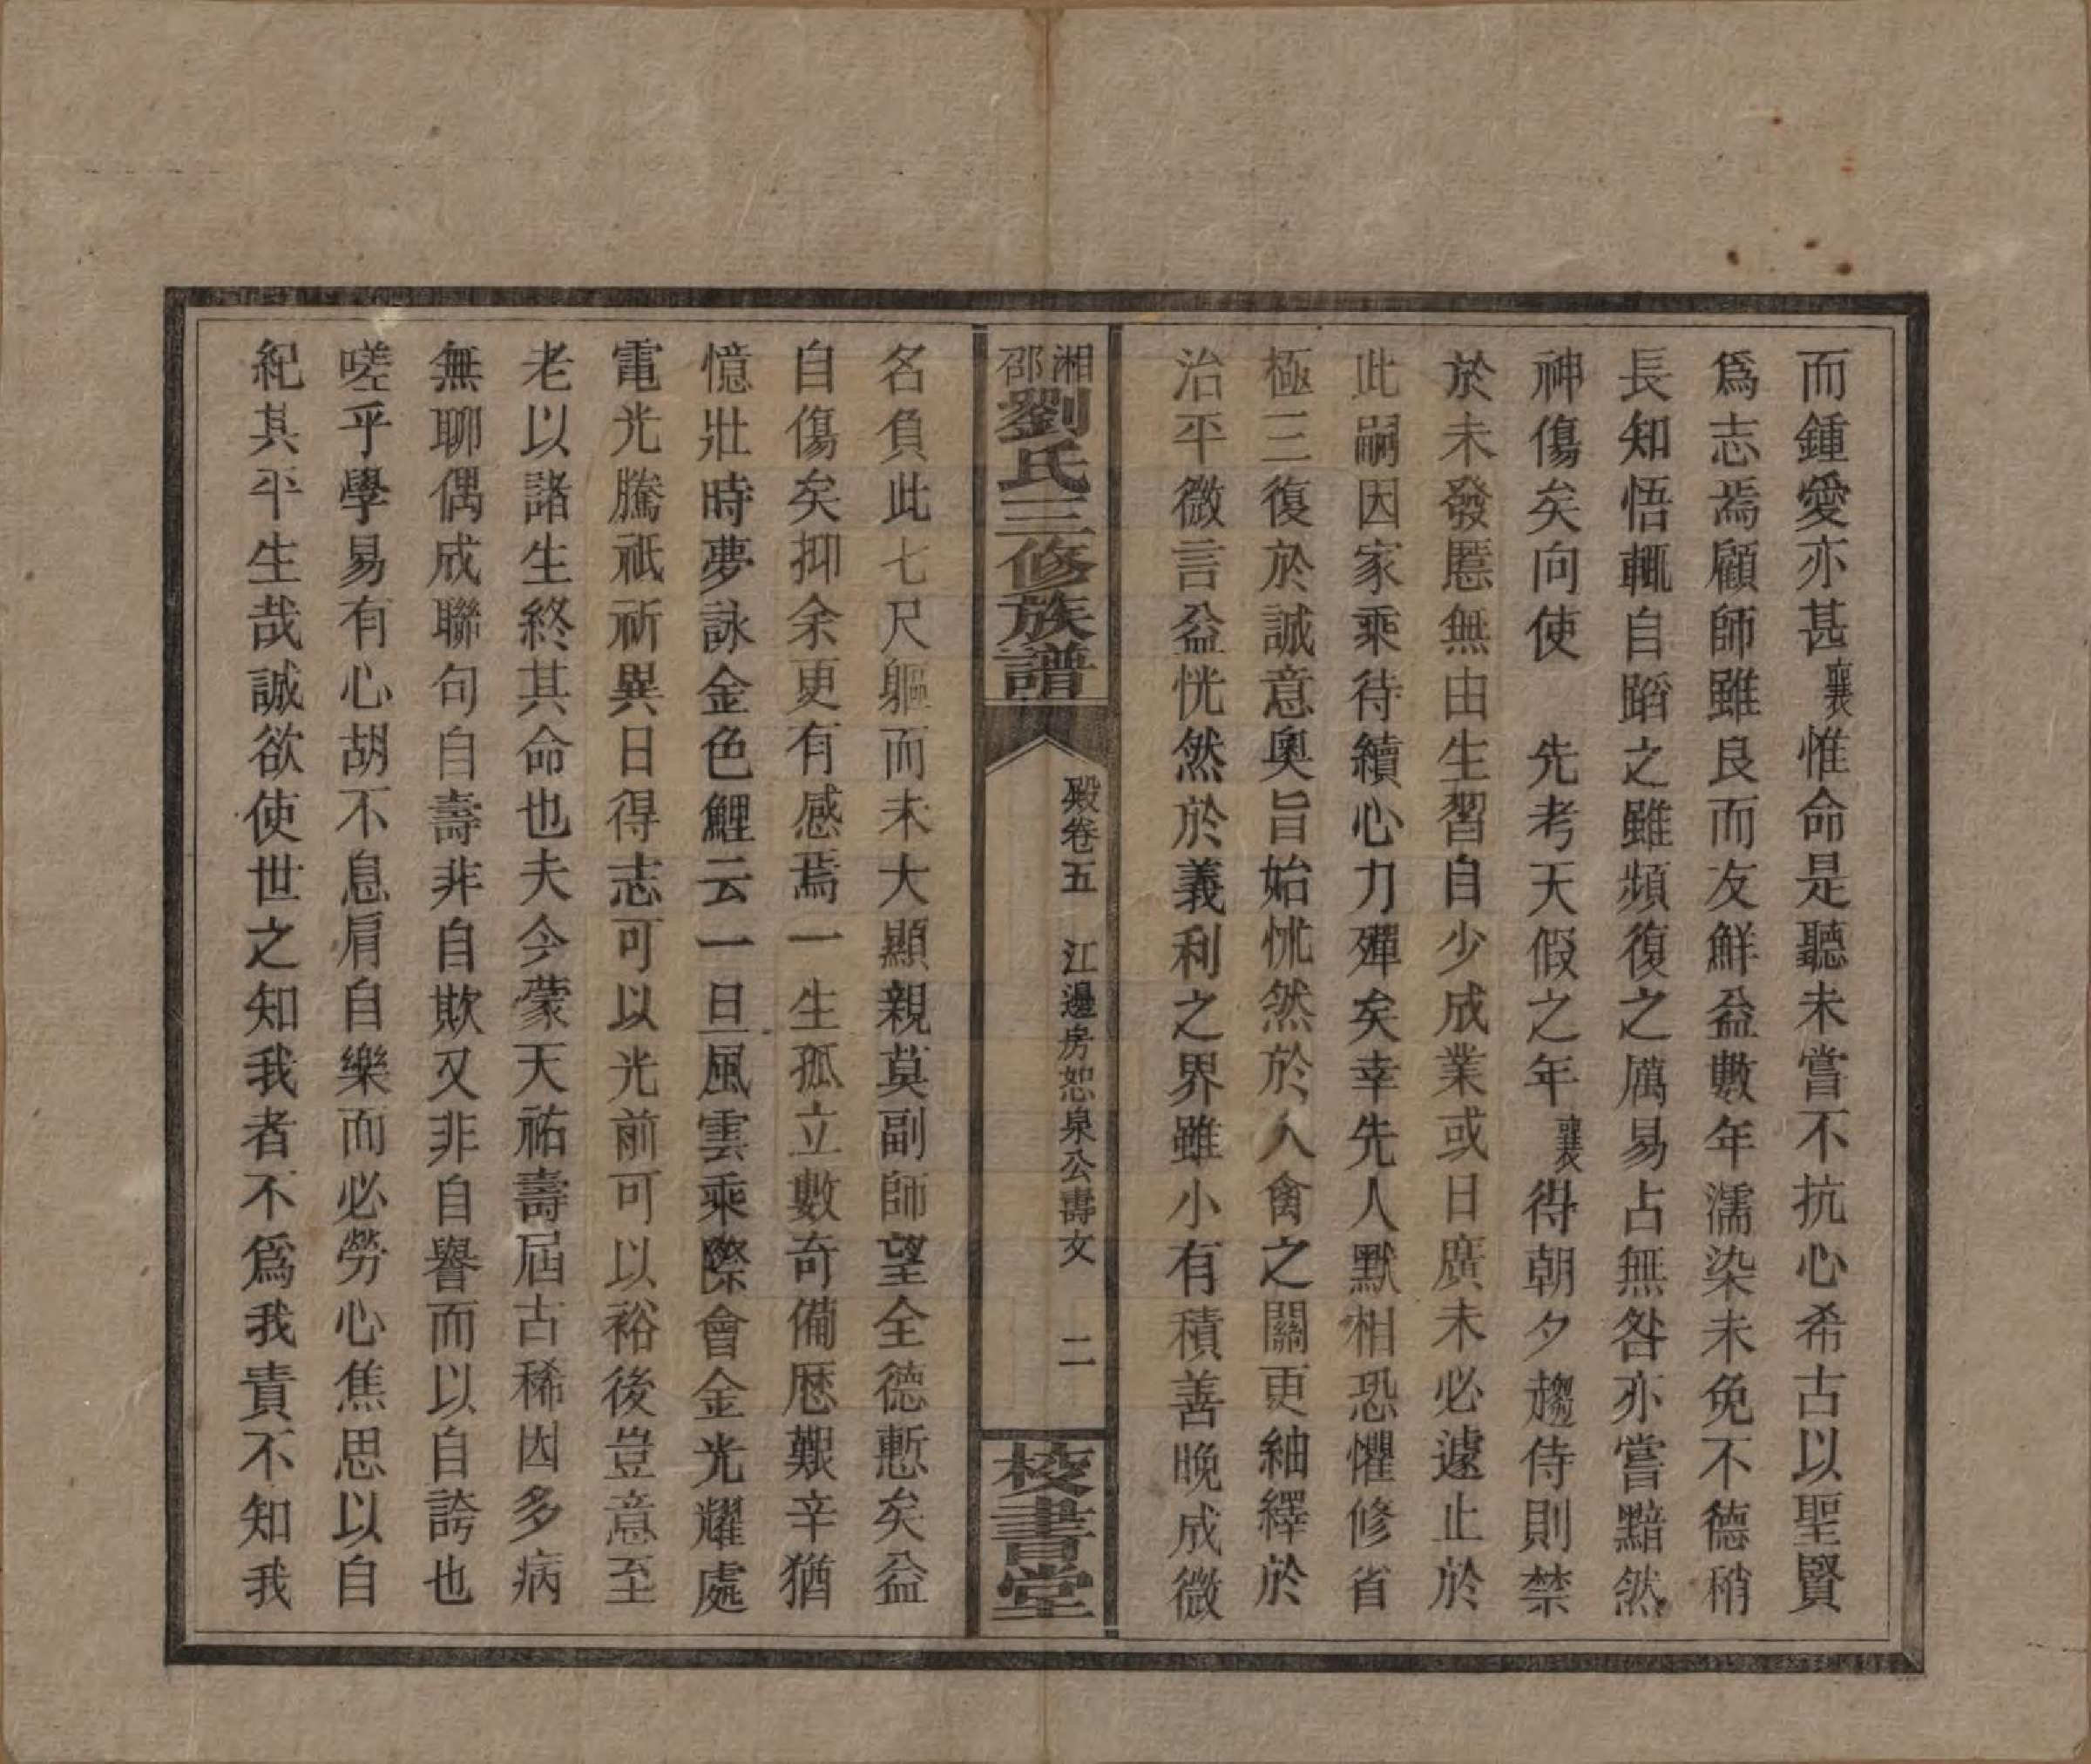 而鍾愛亦甚襄惟命是聽未嘗不抗心希古以聖賢
爲志焉顧師雖良而友鮮益數年濡染未免不德稍
長知悟輒自蹈之雖頻復之厲易占無咎亦嘗黯然
神傷矣向使　先考天假之年襄得朝夕趨侍則禁
於未發慝無由生習自少成業或日廣未必遽止於
此嗣因家乘待續心力殫矣幸先人默相恐懼修省
極三復於誠意奧旨始怵然於人禽之關更紬繹於
治平微言益恍然於義利之界雖小有積善晚成微
湘邵劉氏三修族譜
殿卷五　江邊房恕泉公壽文　二
校書堂
名負此七尺軀而未大顯親莫副師望全德慙矣益
自傷矣抑余更有感焉一生孤立數奇備歷艱辛猶
憶壯時夢詠金色鯉云一旦風雲乘際會金光耀處
電光騰祇祈異日得志可以光前可以裕後豈意至
老以諸生終其命也夫今蒙天祐壽屆古稀因多病
無聊偶成聯句自壽非自欺又非自譽而以自誇也
嗟乎學易有心胡不息肩自樂而必勞心焦思以自
紀其平生哉誠欲使世之知我者不爲我責不知我